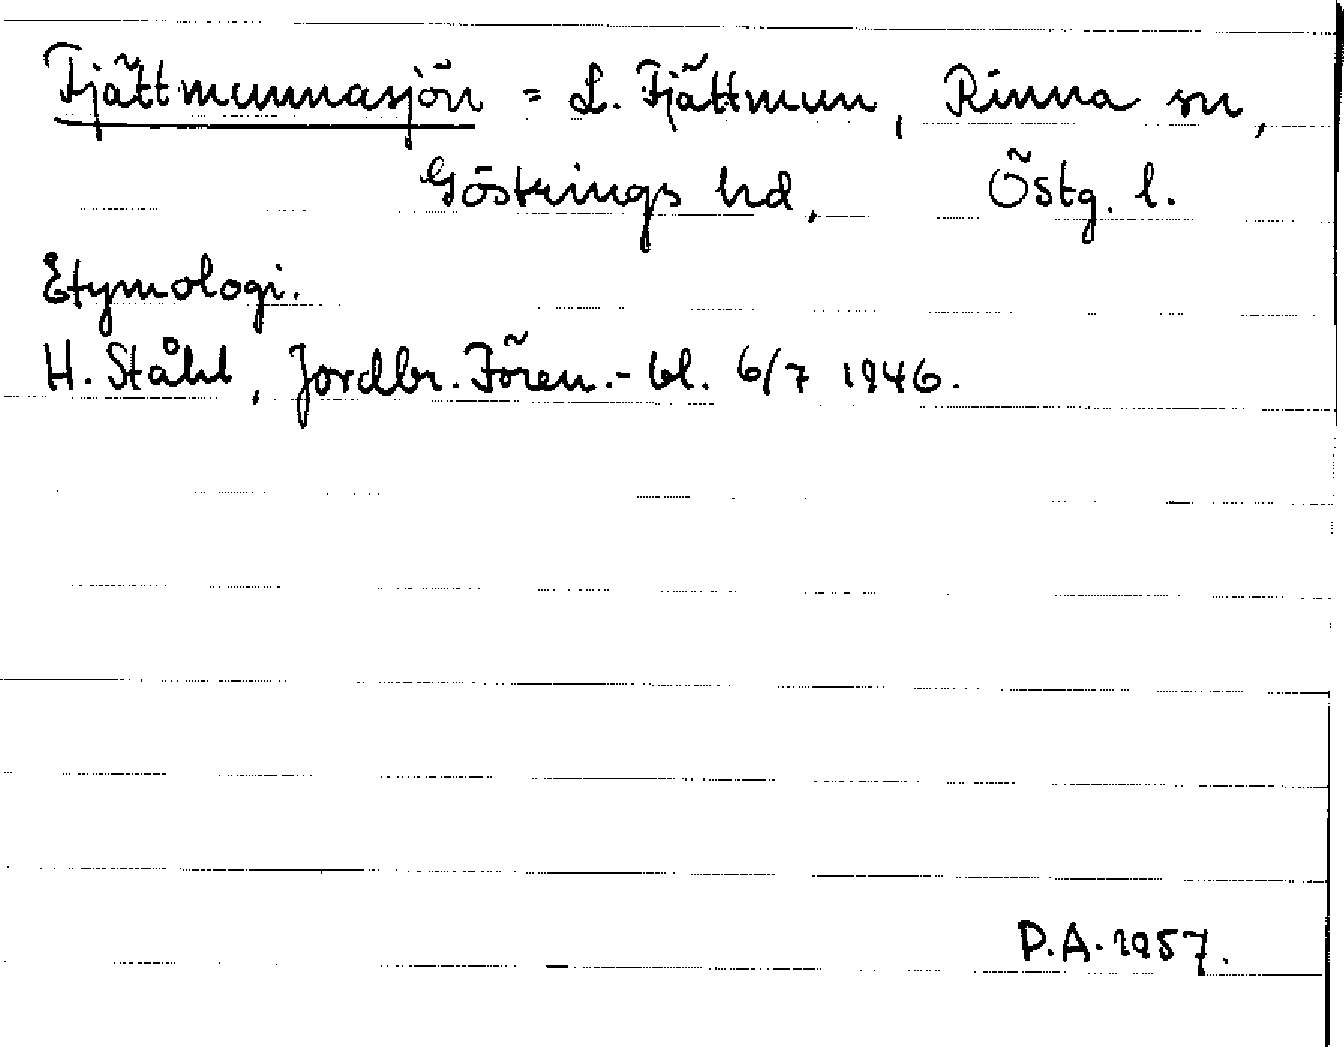 Fjättmunnasjön = L. Fjättmun, Rinna sn,
Göstrings hd, Östg. l.
Etymologi.
H. Ståhl, Jordbr. Fören.-bl. 6/7 1946.
P.A. 1957.